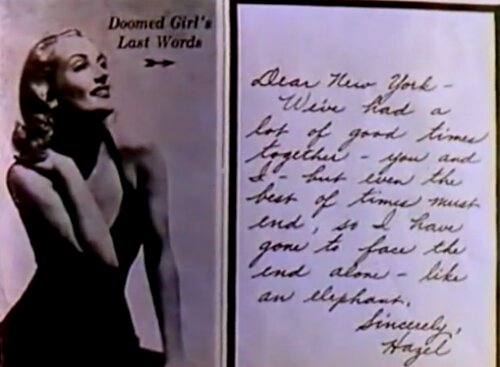 Doomed Girl's
Last Words
Dear New York –
We've had a
lot of good times
together – you and
I – but even the
best of times must
end, so I have
gone to face the
end alone – like
an elephant.
Sincerely,
Hazel